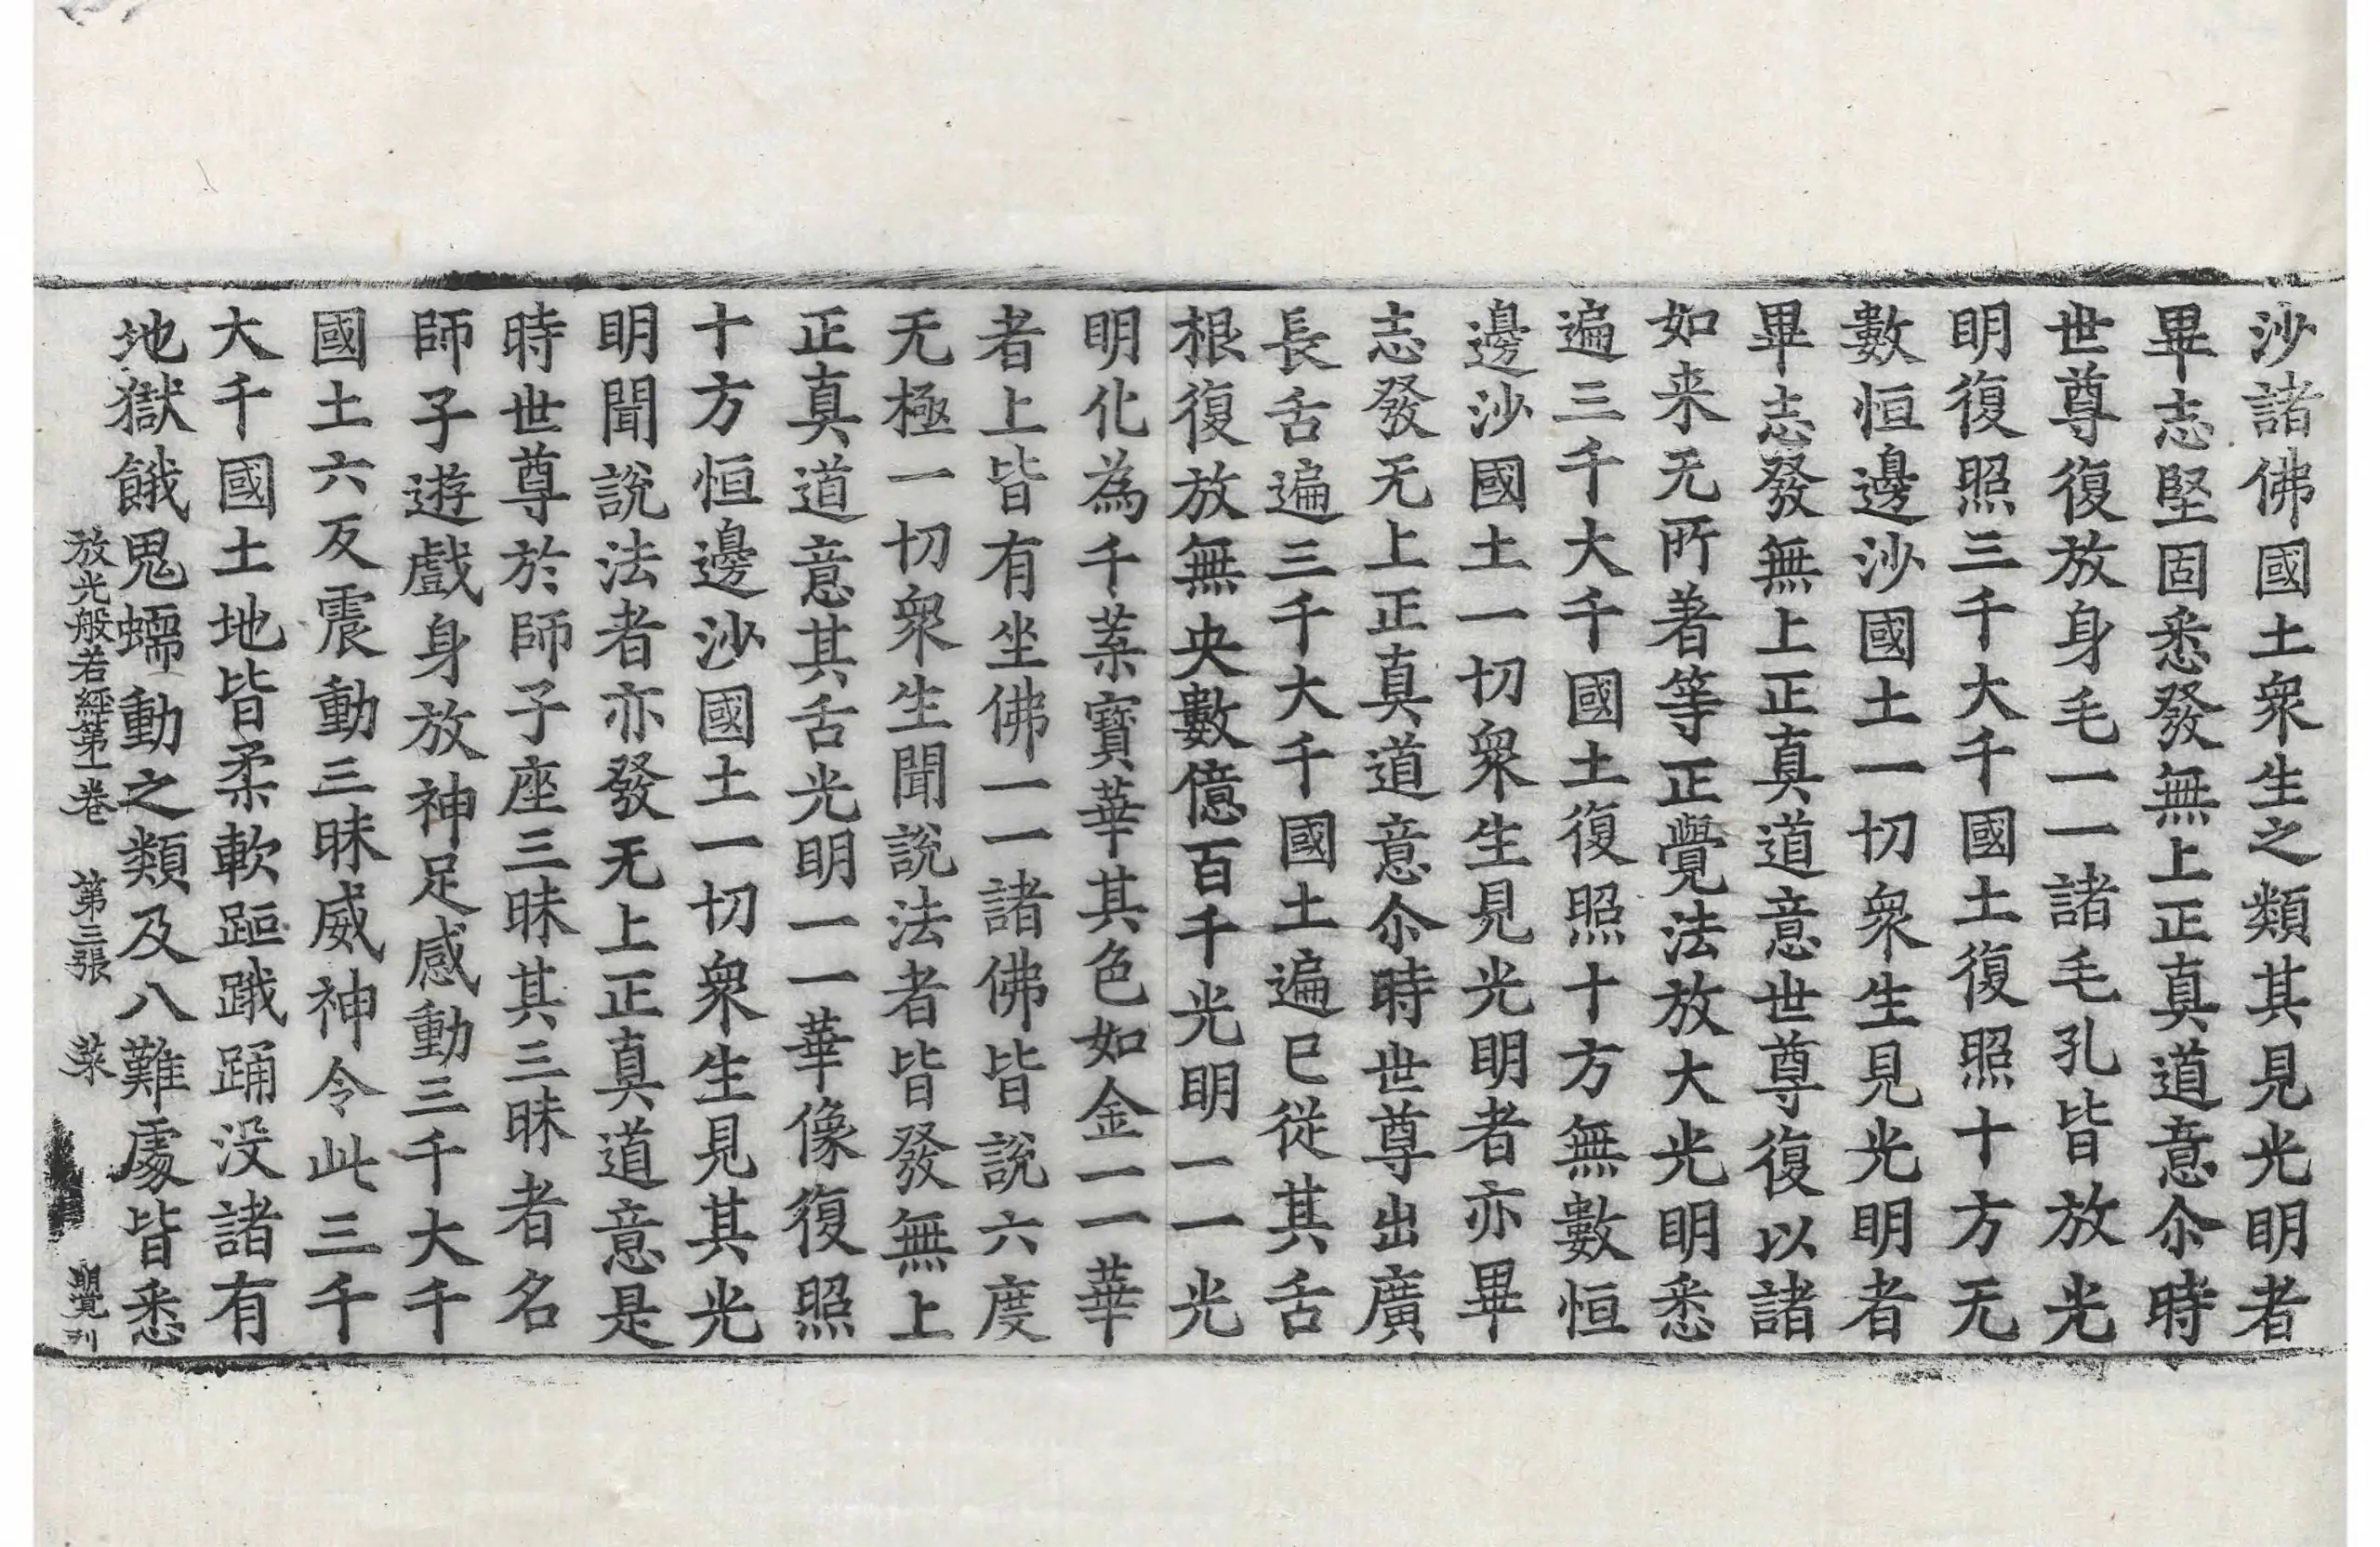 沙諸佛國土衆生之類其見光明者
畢志堅固悉發無上正真道意尒時
世尊復放身毛一一諸毛孔皆放光
明復照三千大千國土復照十方无
數恒邊沙國土一切衆生見光明者
畢志發無上正真道意世尊復以諸
如来无所著等正覺法放大光明悉
遍三千大千國土復照十方無數恒
邊沙國土一切衆生見光明者亦畢
志發无上正真道意尒時世尊出廣
長舌遍三千大千國土遍已從其舌
根復放無央數億百千光明一一光
明化為千葉寶華其色如金一一華
者上皆有坐佛一一諸佛皆說六度
无極一切衆生聞說法者皆發無上
正真道意其舌光明一一華像復照
十方恒邊沙國土一切衆生見其光
明聞說法者亦發无上正真道意是
時世尊於師子座三昧其三昧者名
師子遊戲身放神足感動三千大千
國土六反震動三昧威神令此三千
大千國土地皆柔軟䟽踊没諸有
地獄餓鬼蠕動之類及八難處皆悉
放光般若經第一卷　第三張　菜　覺刋